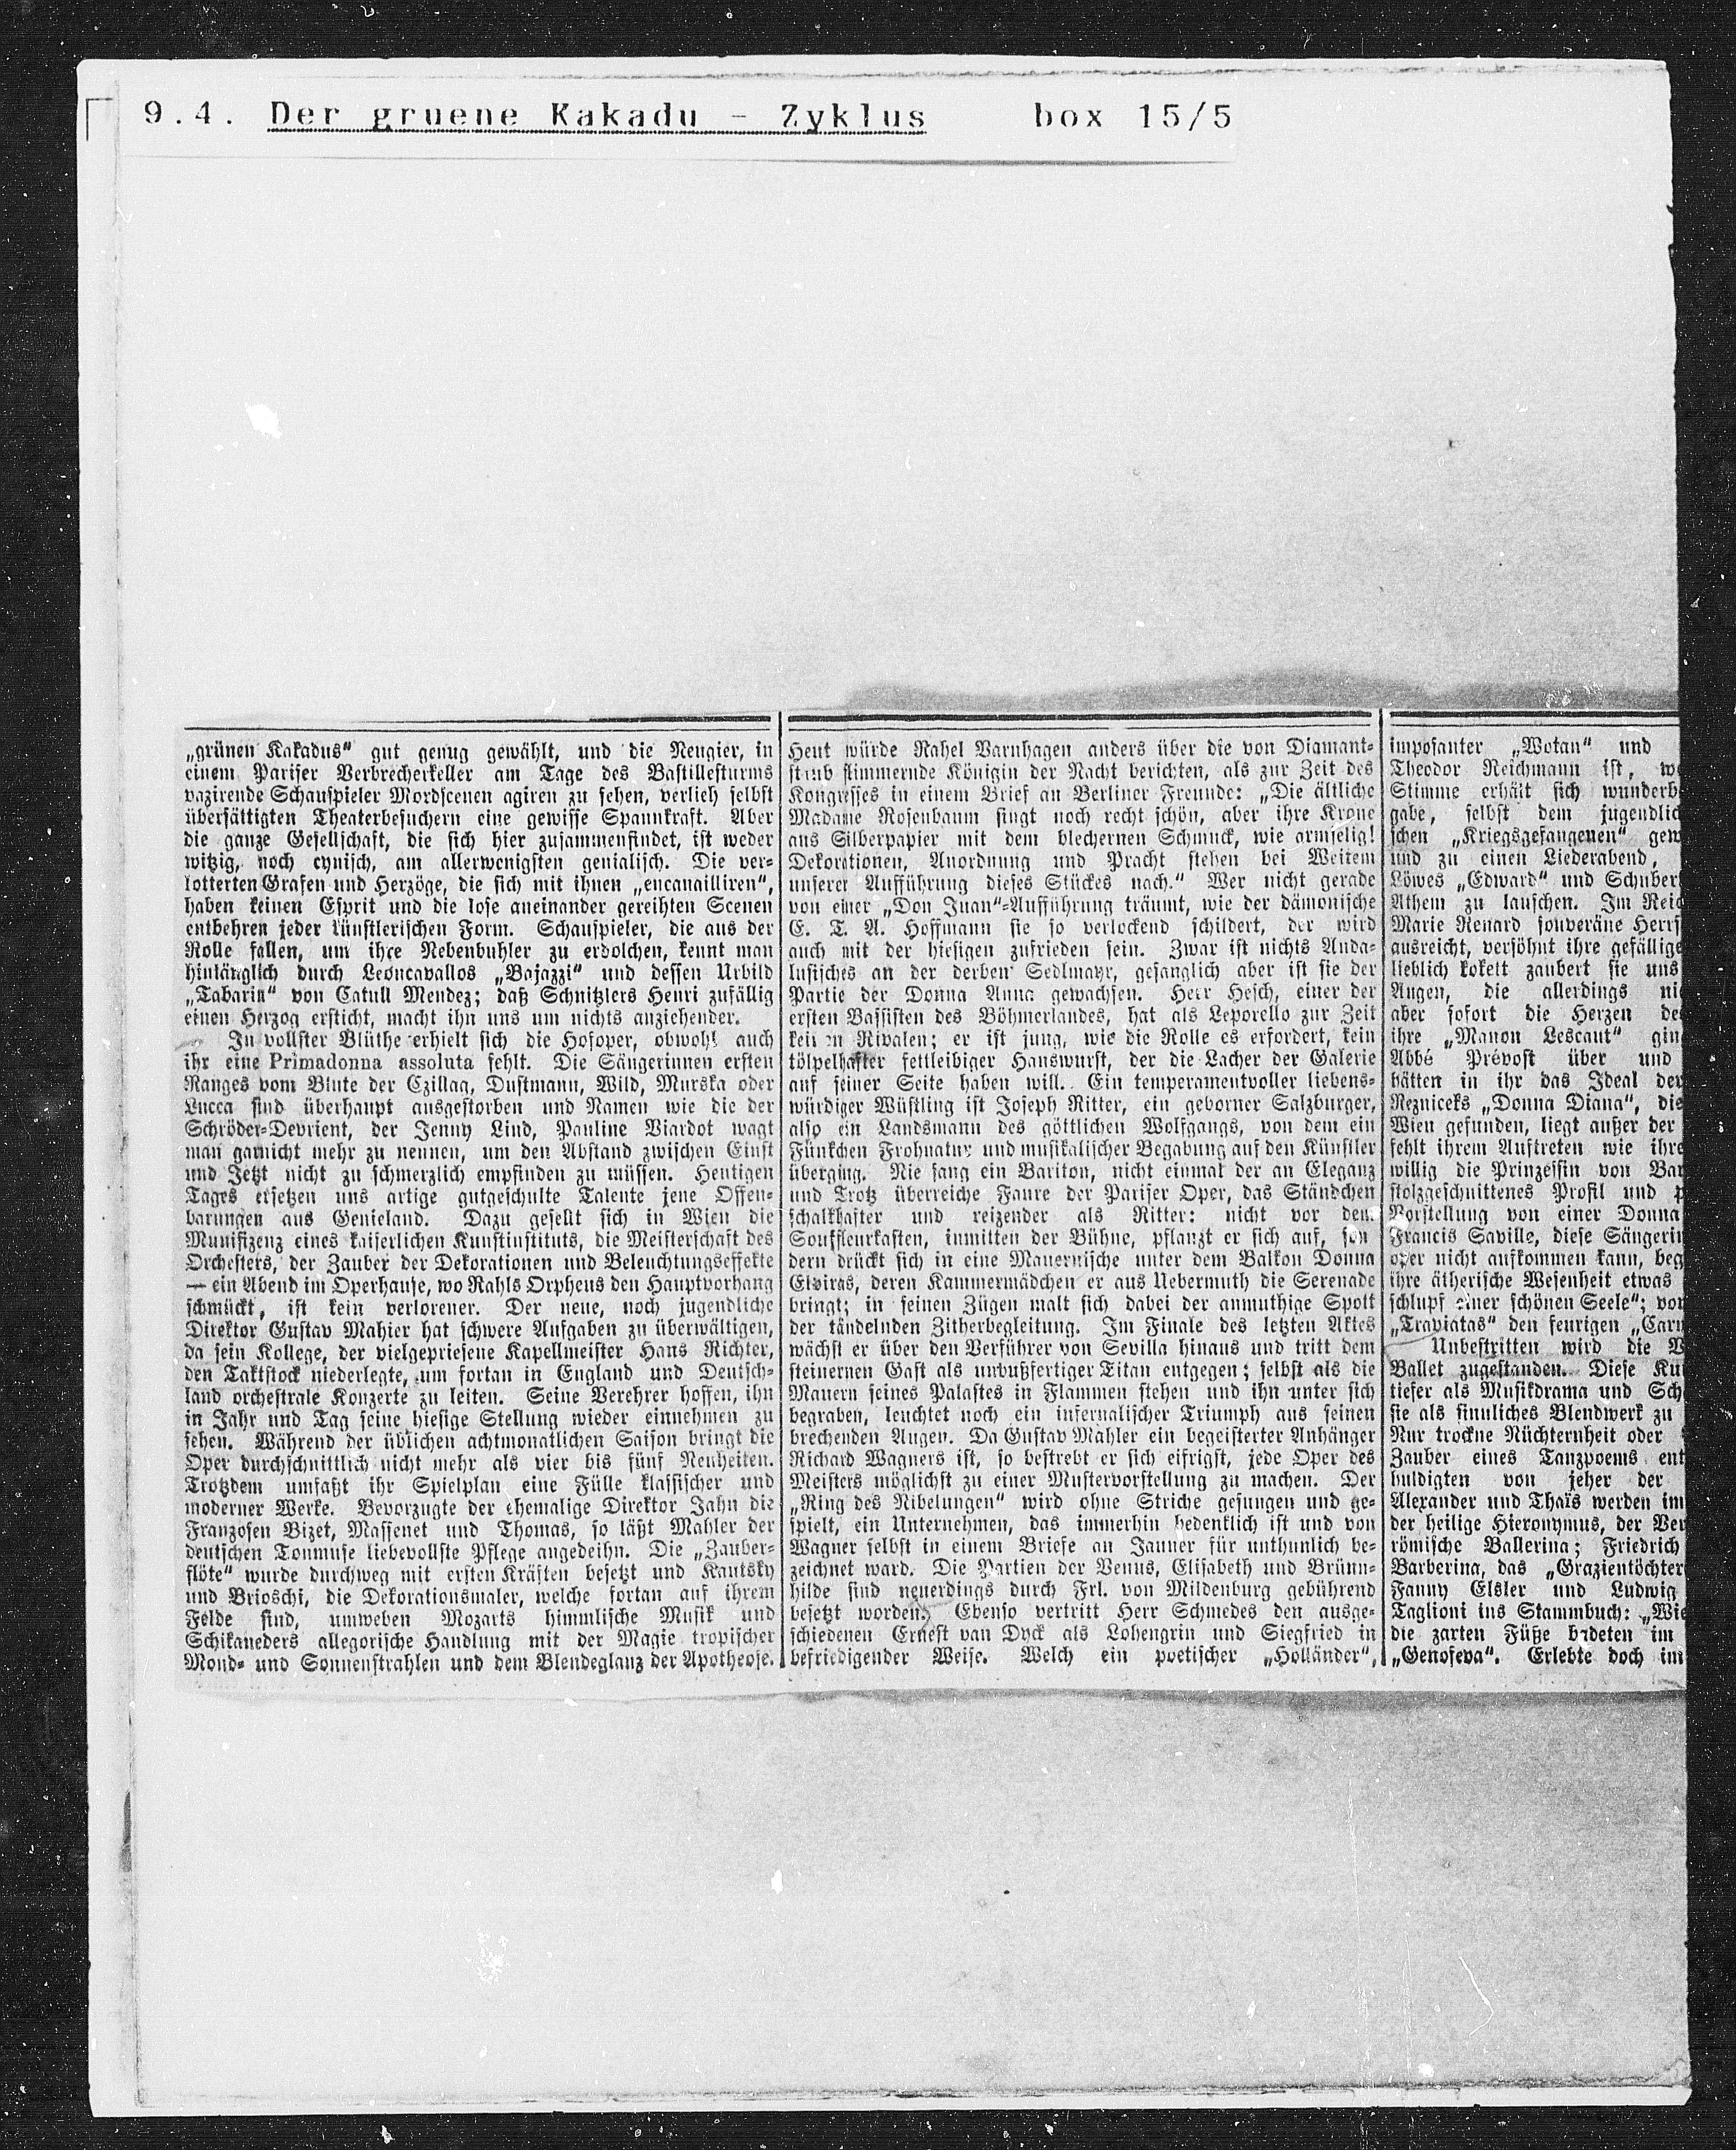 9.4. Der gruene Kakadu - Zyklus box 15/5
„grünen Kakadus“ gut genug gewählt, und die Neugier, in
einem Pariser Verbrecherkeller am Tage des Bastillesturms
vazirende Schauspieler Mordscenen agiren zu sehen, verlieh selbst
übersättigten Theaterbesuchern eine gewisse Spannkraft. Aber
die ganze Gesellschaft, die sich hier zusammenfindet, ist weder
witzig, noch cynisch, am allerwenigsten genialisch. Die ver-
lotterten Grafen und Herzöge, die sich mit ihnen „encanailliren“,
haben keinen Esprit und die lose aneinander gereihten Scenen
entbehren jeder künstlerischen Form. Schauspieler, die aus der
Rolle fallen, um ihre Nebenbuhler zu erdolchen, kennt man
hinlänglich durch Leoncavallos „Bajazzi“ und dessen Urbild
„Tabarin“ von Catull Mendez; daß Schnitzlers Henri zufällig
einen Herzog ersticht, macht ihn uns um nichts anziehender.
In vollster Blüthe erhielt sich die Hofoper, obwohl auch
ihr eine Primadonna assoluta fehlt. Die Sängerinnen ersten
Ranges vom Blute der Czillag, Dustmann, Wild, Murska oder
Lucca sind überhaupt ausgestorben und Namen wie die der
Schröder-Devrient, der Jenny Lind, Pauline Viardot wagt
man garnicht mehr zu nennen, um den Abstand zwischen Einst
und Jetzt nicht zu schmerzlich empfinden zu müssen. Heutigen
Tages ersetzen uns artige gutgeschulte Talente jene Offen-
barungen aus Genieland. Dazu gesellt sich in Wien die
Munifizenz eines kaiserlichen Kunstinstituts, die Meisterschaft des
Orchesters, der Zauber der Dekorationen und Beleuchtungseffekte
— ein Abend im Operhause, wo Rahls Orpheus den Hauptvorhang
schmückt, ist kein verlorener. Der neue, noch jugendliche
Direktor Gustav Mahler hat schwere Aufgaben zu überwältigen,
da sein Kollege, der vielgepriesene Kapellmeister Hans Richter,
den Taktstock niederlegte, um fortan in England und Deutsch-
land orchestrale Konzerte zu leiten. Seine Verehrer hoffen, ihn
in Jahr und Tag seine hiesige Stellung wieder einnehmen zu
sehen. Während der üblichen achtmonatlichen Saison bringt die
Oper durchschnittlich nicht mehr als vier bis fünf Neuheiten.
Trotzdem umfaßt ihr Spielplan eine Fülle klassischer und
moderner Werke. Bevorzugte der ehemalige Direktor Jahn die
Franzosen Bizet, Massenet und Thomas, so läßt Mahler der
deutschen Tonmuse liebevollste Pflege angedeihn. Die „Zauber-
flöte“ wurde durchweg mit ersten Kräften besetzt und Kautsky
und Brioschi, die Dekorationsmaler, welche fortan auf ihrem
Felde sind, umweben Mozarts himmlische Musik und
Schikaneders allegorische Handlung mit der Magie tropischer
Mond- und Sonnenstrahlen und dem Blendeglanz der Apotheose.
Heut würde Rahel Varnhagen anders über die von Diamant-
staub flimmernde Königin der Nacht berichten, als zur Zeit des
Kongresses in einem Brief an Berliner Freunde: „Die ältliche
Madame Rosenbaum singt noch recht schön, aber ihre Krone
aus Silberpapier mit dem blechernen Schmuck, wie armselig!
Dekorationen, Anordnung und Pracht stehen bei Weitem
unserer Aufführung dieses Stückes nach.“ Wer nicht gerade
von einer „Don Juan“-Aufführung träumt, wie der dämonische
E. T. A. Hoffmann sie so verlockend schildert, der wird
auch mit der hiesigen zufrieden sein. Zwar ist nichts Anda-
lusisches an der derben Sedlmayr, gesanglich aber ist sie der
Partie der Donna Anna gewachsen. Herr Hesch, einer der
ersten Bassisten des Böhmerlandes, hat als Leporello zur Zeit
keinen Rivalen; er ist jung, wie die Rolle es erfordert, kein
tölpelhafter fettleibiger Hanswurst, der die Lacher der Galerie
auf seiner Seite haben will. Ein temperamentvoller liebens-
würdiger Wüstling ist Joseph Ritter, ein geborner Salzburger,
also ein Landsmann des göttlichen Wolfgangs, von dem ein
Fünkchen Frohnatur und musikalischer Begabung auf den Künstler
überging. Nie sang ein Bariton, nicht einmal der an Eleganz
und Trotz überreiche Faure der Pariser Oper, das Ständchen
schalkhafter und reizender als Ritter: nicht vor dem
Souffleurkasten, inmitten der Bühne, pflanzt er sich auf, son
dern drückt sich in eine Mauernische unter dem Balkon Donna
Elviras, deren Kammermädchen er aus Uebermuth die Serenade
bringt; in seinen Zügen malt sich dabei der anmuthige Spott
der tändelnden Zitherbegleitung. Im Finale des letzten Aktes
wächst er über den Verführer von Sevilla hinaus und tritt dem
steinernen Gast als unbußfertiger Titan entgegen; selbst als die
Mauern seines Palastes in Flammen stehen und ihn unter sich
begraben, leuchtet noch ein infernalischer Triumph aus seinen
brechenden Augen. Da Gustav Mahler ein begeisterter Anhänger
Richard Wagners ist, so bestrebt er sich eifrigst, jede Oper des
Meisters möglichst zu einer Mustervorstellung zu machen. Der
„Ring des Nibelungen“ wird ohne Striche gesungen und ge-
spielt, ein Unternehmen, das immerhin bedenklich ist und von
Wagner selbst in einem Briefe an Jauner für unthunlich be-
zeichnet ward. Die Partien der Venus, Elisabeth und Brünn-
hilde sind neuerdings durch Frl. von Mildenburg gebührend
besetzt worden. Ebenso vertritt Herr Schmedes den ausge-
schiedenen Ernest van Dyck als Lohengrin und Siegfried in
befriedigender Weise. Welch ein poetischer „Holländer“,
imposanter „Wotan“ und
Theodor Reichmann ist, we
Stimme erhält sich wunderb
gabe, selbst dem jugendlic
schen „Kriegsgefangenen“ gew
und zu einen Liederabend,
Löwes „Edward“ und Schuber
Athem zu lauschen. Im Reic
Marie Renard souveräne Herrs
ausreicht, versöhnt ihre gefällige
lieblich kokett zaubert sie uns
Augen, die allerdings ni
aber sofort die Herzen de
ihre „Manon Lescaut“ gin
Abbé Prévost über und
hätten in ihr das Ideal der
Rezniceks „Donna Diana“, die
Wien gefunden, liegt außer der
fehlt ihrem Auftreten wie ihre
willig die Prinzessin von Bar
stolzgeschnittenes Profil und p
Vorstellung von einer Donna
Francis Saville, diese Sängerin
oper nicht aufkommen kann, beg
ihre ätherische Wesenheit etwas
schlupf einer schönen Seele“; von
„Traviatas“ den feurigen „Carm
Unbestritten wird die W
Ballet zugestanden. Diese Kun
tiefer als Musikdrama und Sch
sie als sinnliches Blendwerk zu
Nur trockne Nüchternheit oder
Zauber eines Tanzpoems ent
huldigten von jeher der
Alexander und Thaïs werden im
der heilige Hieronymus, der Ver
römische Ballerina; Friedrich
Barberina, das „Grazientöchter
Fanny Elsler und Ludwig
Taglioni ins Stammbuch: „Wie
die zarten Füße badeten im
„Genofeva“. Erlebte doch im